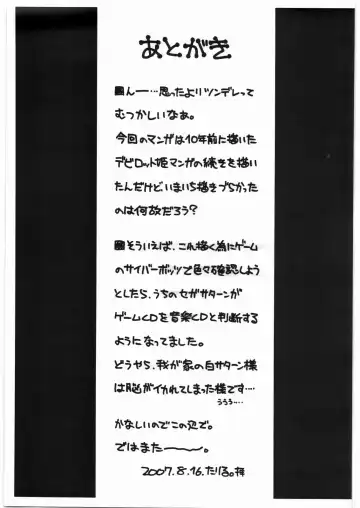 あとがき
■んー…思ったよりツンデレって
むつかしいなぁ。
今回のマンガは10年前に描いた
デビロット姫マンガの続きを描い
たんだけど、いまいち描きづらかった
のは何故だろう?
■そういえば、これ描く為にゲーム
のサイバーボッツで色々確認しよう
としたら、うちのセガサターンが
ゲームCDを音楽CDと判断する
ようになってました。
どうやら、我が家の白サターン様
は脳がイカれてしまった様です…
うぅぅ…
かなしいのでこの辺で。
ではまた〜。
2007.8.16.たりる。拝